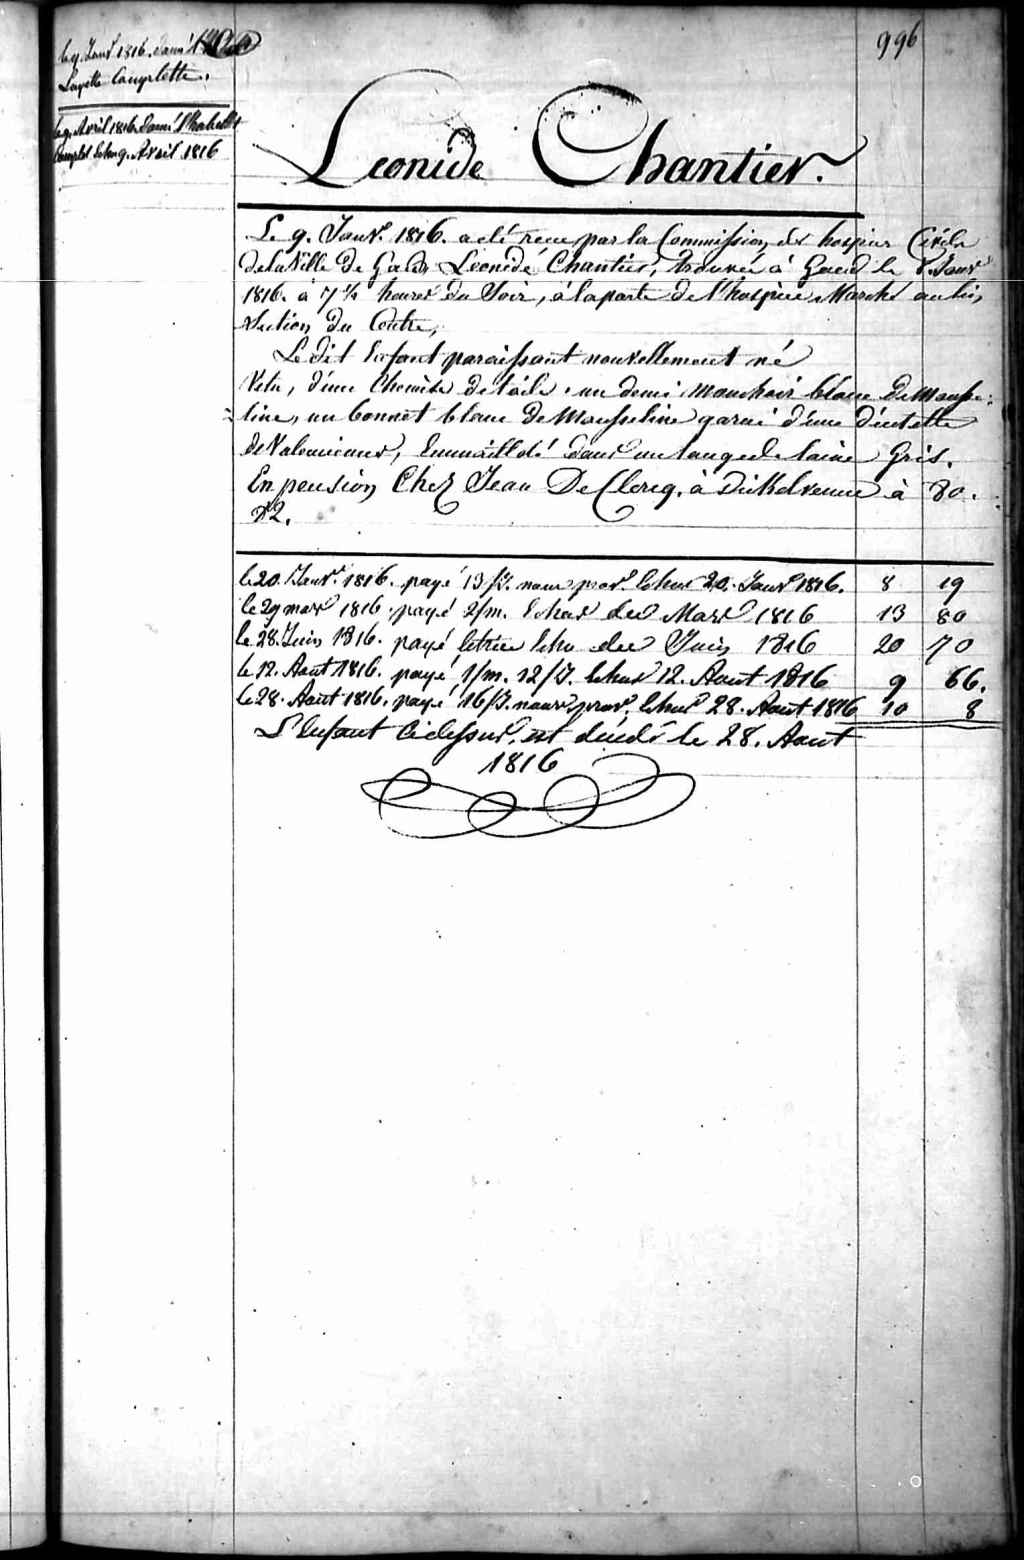 996
le 9. Janv.r 1816. donné l'
Layette Complette.
le 9. Avril 1816. donné l'habillt
Complet Echu 9. Avril 1816
Leonide Chantier.
Le 9. Janv.r 1816. a été recu par la Commission des hospices Civils
de la Ville de Gand, Léonide Chantier, trouvée à Gand le 8. Janv.r
1816. à 7 ½ heures du Soir, à la porte de l'hospice, Marché au lin,
Section du Centre,
Le dit Enfant paraissant nouvellement né
Vetu, d'une Chemise de toile, un demi mouchoir blanc de mousse=
=line, un bonnet blanc de Mousseline garni d'une dentelle
de Valenciennes, Emmailloté dans un lange de laine Gris.
En pension Chez Jean De Clercq, à Dickelvenne à 80.
le 20. Janv.r 1816. payé 13/J. nourr prov.e Echus 20. Janv.r 1816. 8 19
le 29 mars 1816. payé 2/m. Echus des Mars 1816 13 80
le 28. Juin 1816. payé letrim Echu des Juin 1816 20 70
le 12. Aout 1816. payé 1/m. 12/J. Echus 12. Aout 1816 9 66.
le 28. Aout 1816. payé 16/J. nourr prov. Echus 28. Aout 1816 10 8
L'Enfant Cidessus, est décédé le 28. Aout
1816